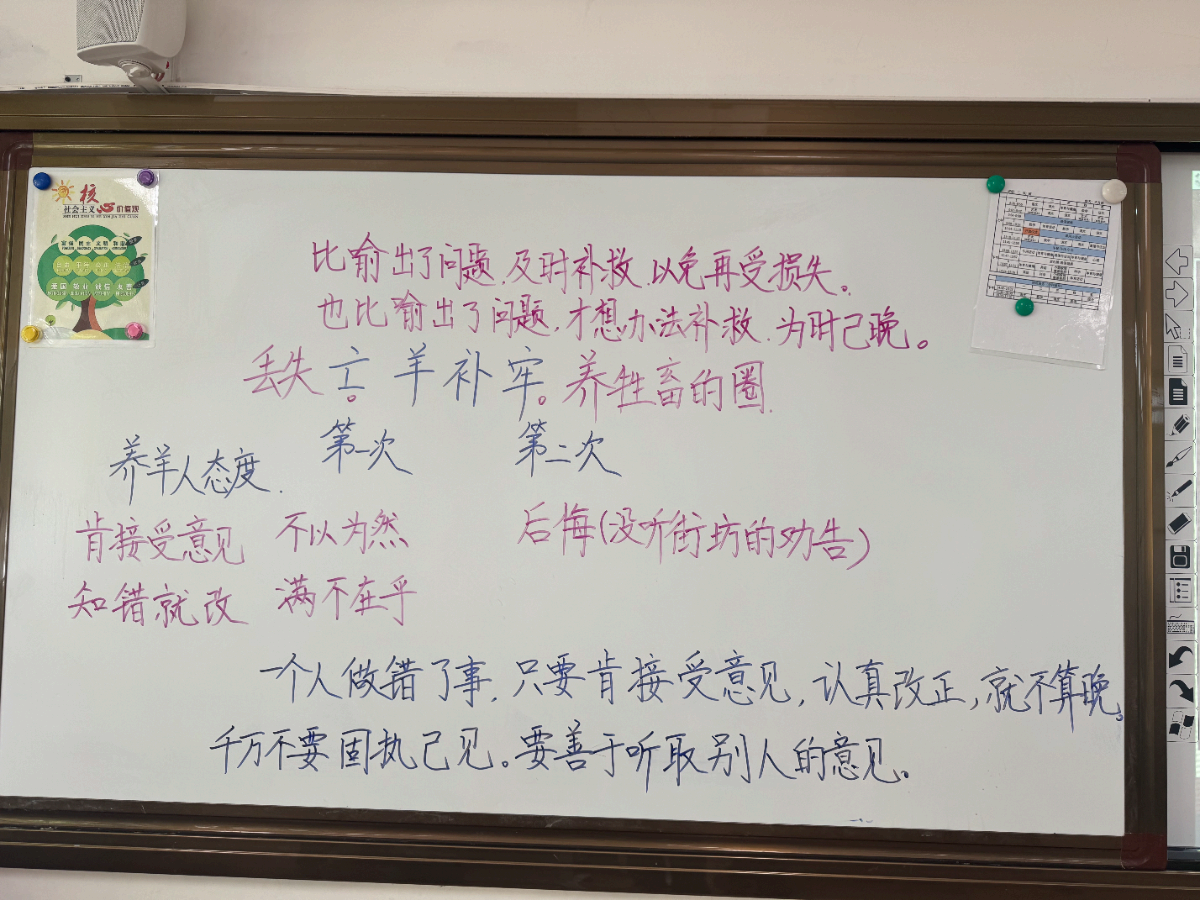 核
社会主义 心 价值观
富强 民主 文明 和谐
爱国 敬业 诚信 友善
比喻出了问题,及时补救,以免再受损失。
也比喻出了问题,才想办法补救,为时已晚。
丢失 亡羊补牢。养牲畜的圈.
养羊人态度. 第一次 第二次
肯接受意见 不以为然 后悔(没听街坊的劝告)
知错就改 满不在乎
一个人做错了事,只要肯接受意见,认真改正,就不算晚。
千万不要固执己见。要善于听取别人的意见。